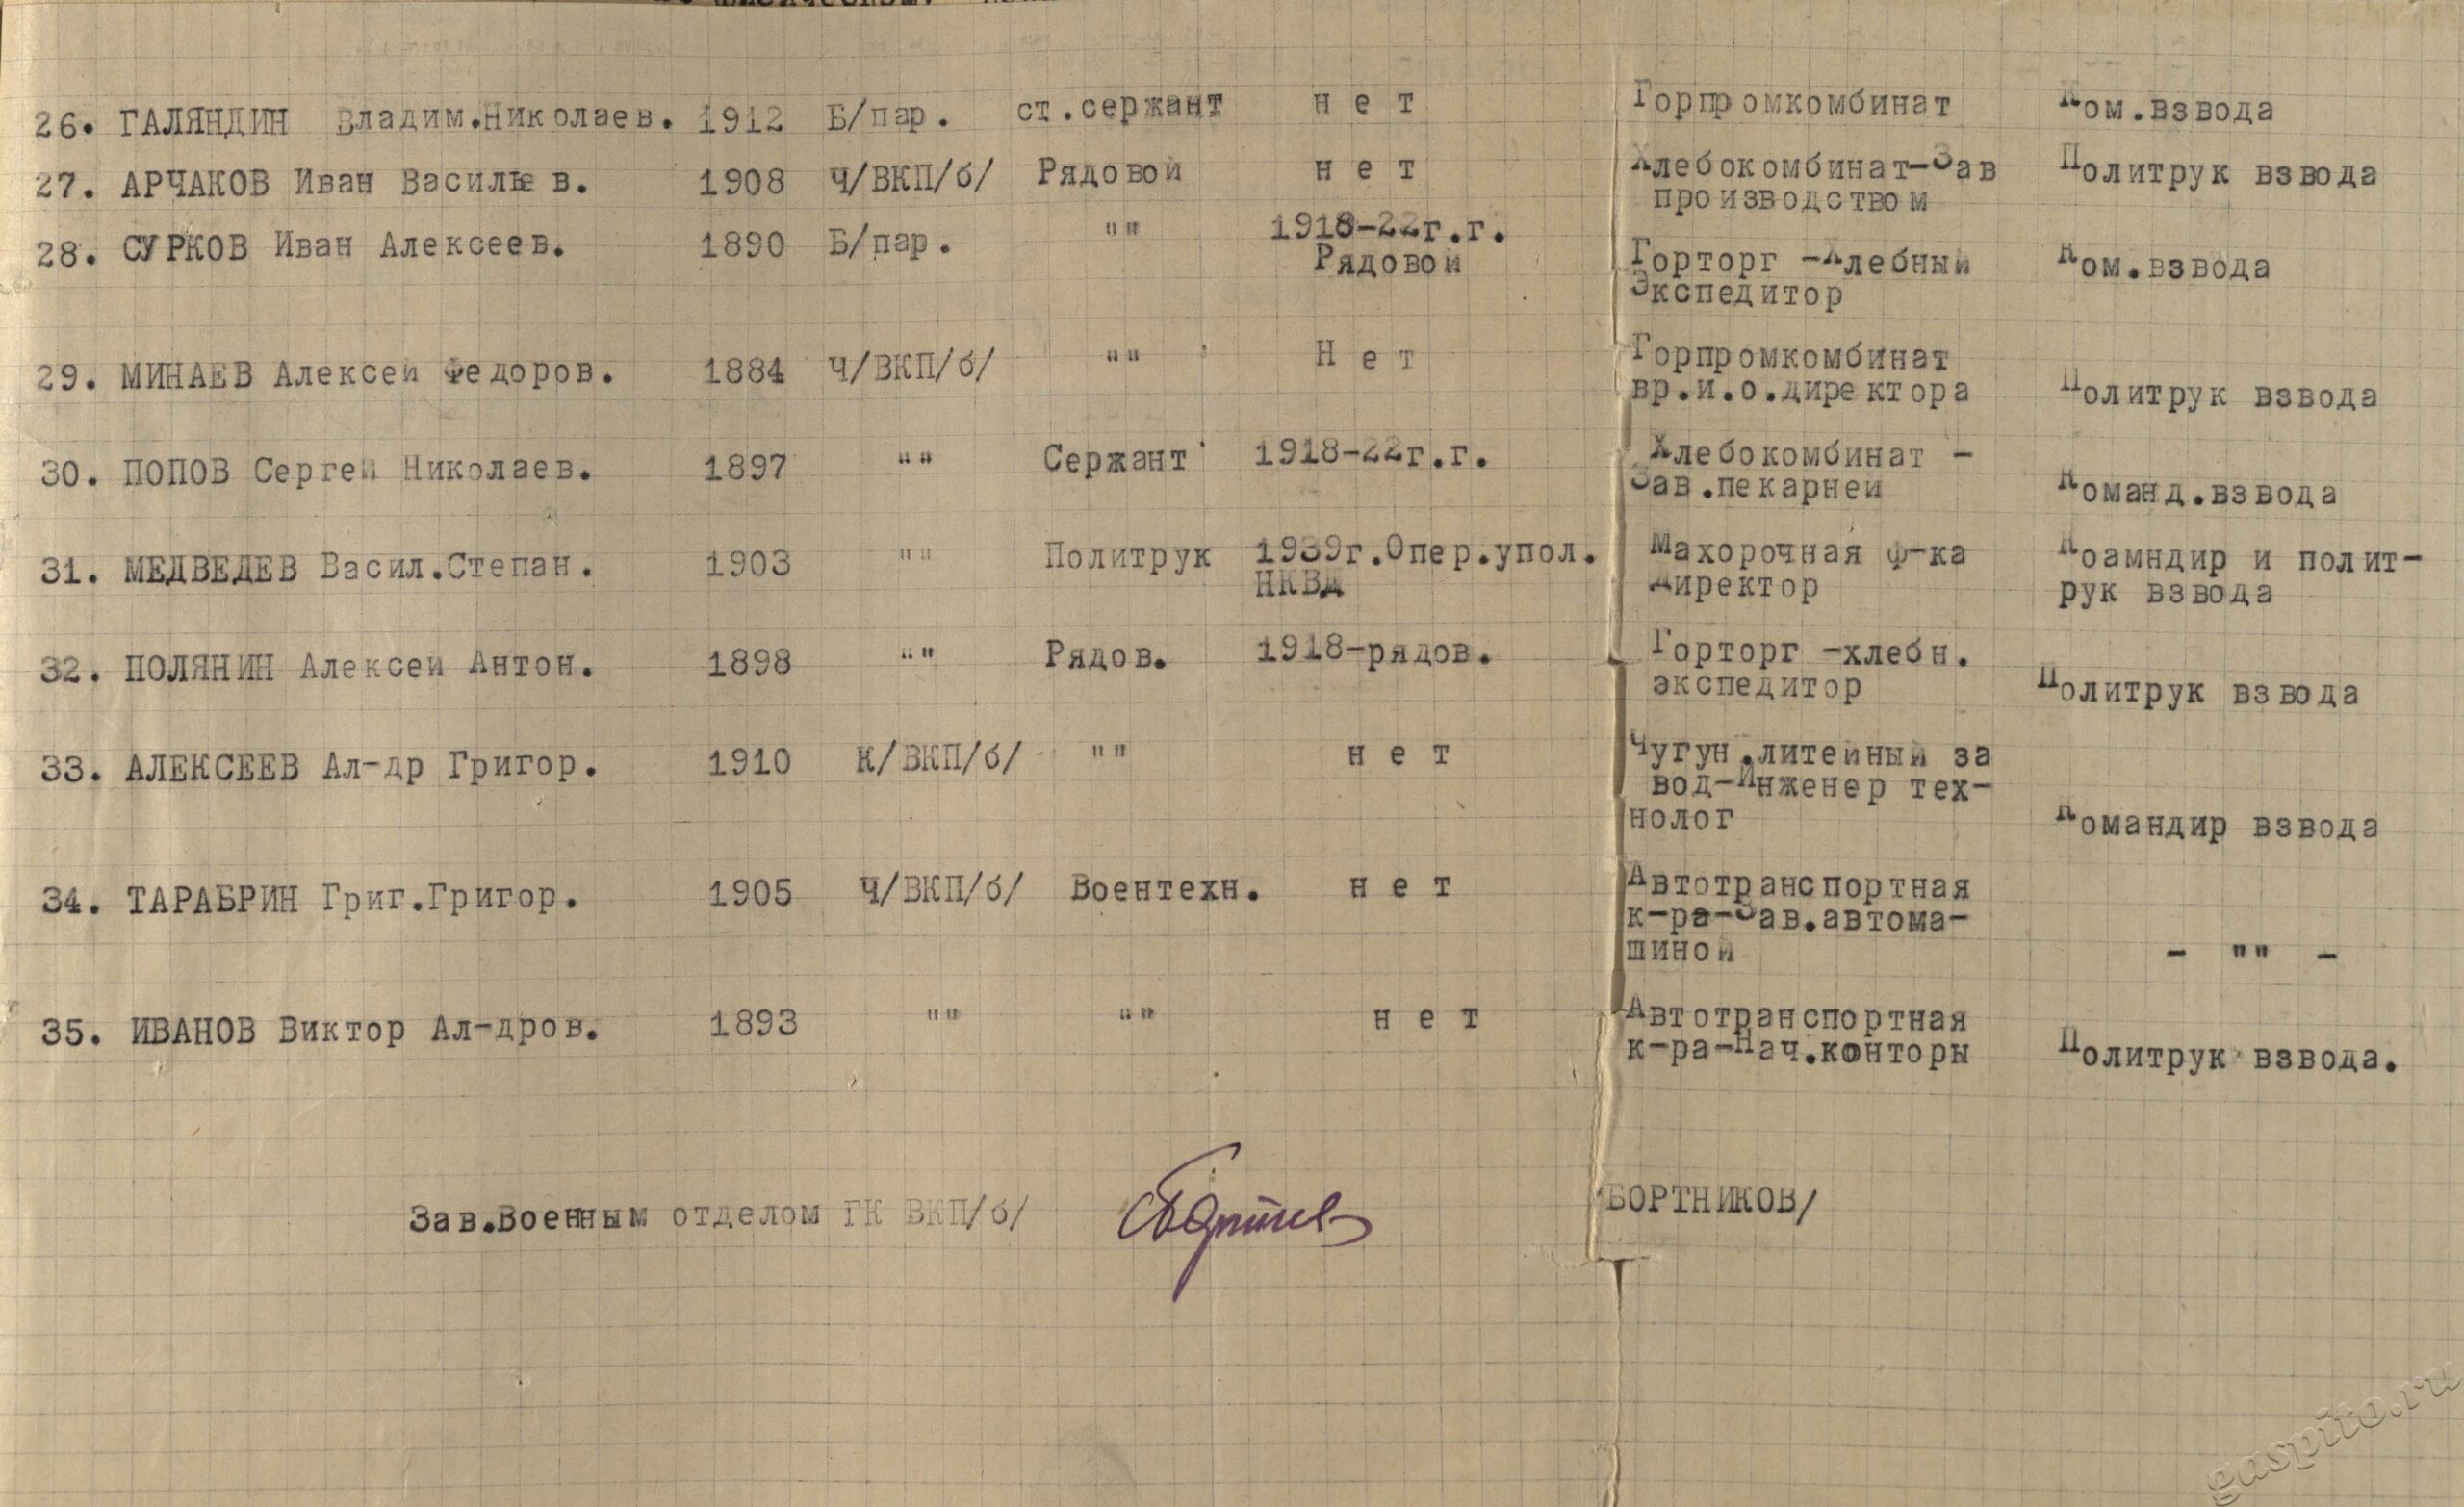 26. ГАЛЯНДИН Владим.Николаев. 1912 Б/пар. ст.сержант н е т Горпромкомбинат Ком.взвода
27. АРЧАКОВ Иван Васильев. 1908 Ч/ВКП/б/ Рядовой н е т Хлебокомбинат-Зав Политрук взвода
производством
28. СУРКОВ Иван Алексеев. 1890 Б/пар. "" 1918-22г.г.
Рядовой Горторг -Хлебный Ком.взвода
Экспедитор
29. МИНАЕВ Алексей Федоров. 1884 Ч/ВКП/б/ "" Н е т Горпромкомбинат
вр.и.о.директора Политрук взвода
30. ПОПОВ Сергей Николаев. 1897 "" Сержант 1918-22г.г. Хлебокомбинат -
Зав.пекарней Команд.взвода
31. МЕДВЕДЕВ Васил.Степан. 1903 "" Политрук 1939г.Опер.упол. Махорочная ф-ка Коамндир и полит-
НКВД Директор рук взвода
32. ПОЛЯНИН Алексей Антон. 1898 "" Рядов. 1918-рядов. Горторг -хлебн.
экспедитор Политрук взвода
33. АЛЕКСЕЕВ Ал-др Григор. 1910 К/ВКП/б/ "" н е т Чугун.литейный за
вод-Инженер тех-
нолог Командир взвода
34. ТАРАБРИН Григ.Григор. 1905 Ч/ВКП/б/ Воентехн. н е т Автотранспортная
к-ра-Зав.автома-
шиной - "" -
35. ИВАНОВ Виктор Ал-дров. 1893 "" "" н е т Автотранспортная
к-ра-Нач.конторы Политрук взвода.
Зав.Военным отделом ГК ВКП/б/ /БОРТНИКОВ/
gaspito.ru